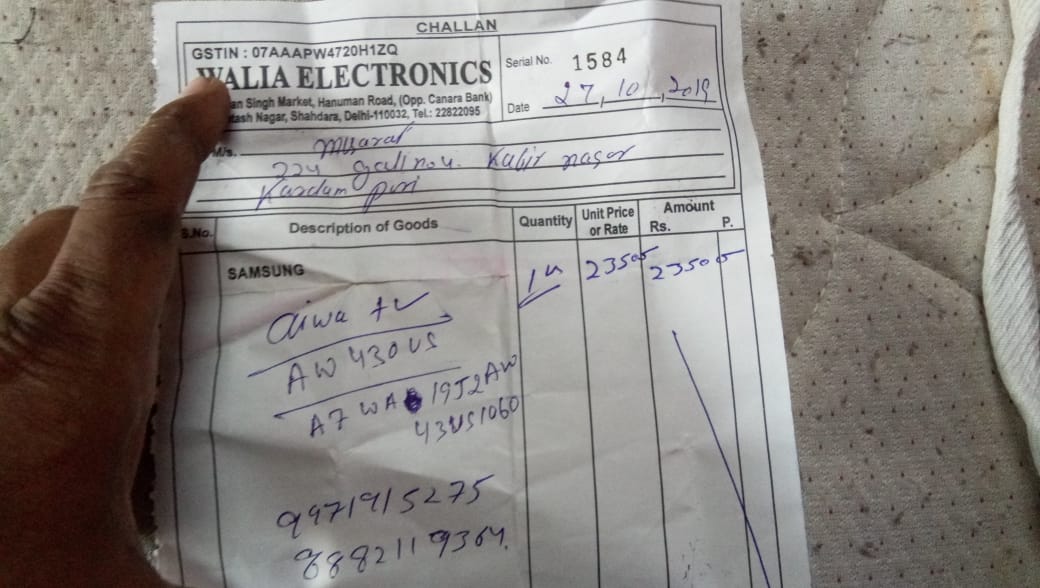 CHALLAN
GSTIN : 07AAAPW4720H1ZQ
WALIA ELECTRONICS
Singh Market, Hanuman Road, (Opp. Canara Bank)
Nagar, Shahdara, Delhi-110032, Tel.: 22822095
Serial No. 1584
Date 27, 10, 2019
M/s.
224 gali no 4. Kabir nagar
Kardam puri
S.No. Description of Goods Quantity Unit Price or Rate Amount Rs. P.
SAMSUNG
Aiwa tv
AW 430 US
A7 WA 1952AW
43US1060
23505 23505
9971915275
8882119364.